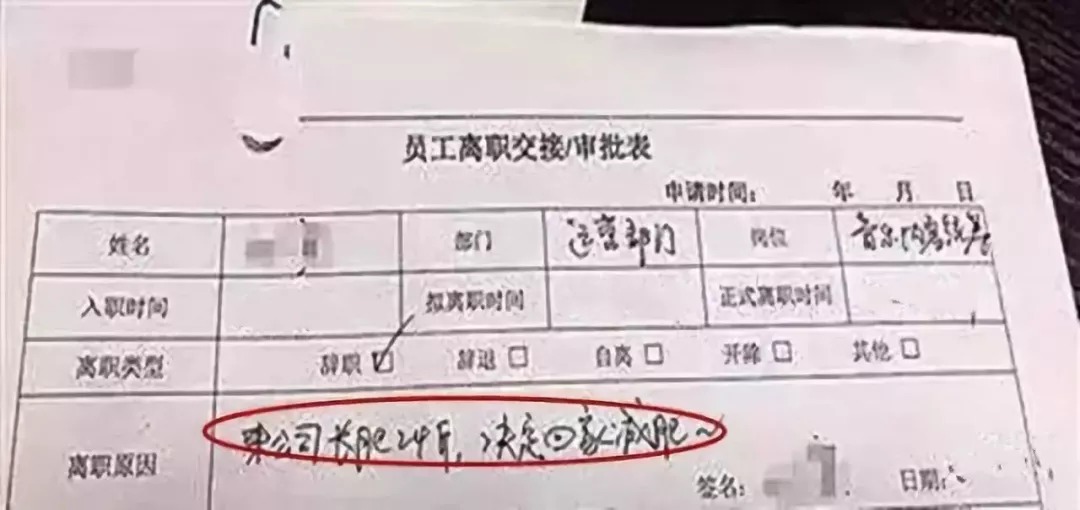 员工离职交接/审批表
申请时间： 年 月 日
姓名 部门 运营部门 岗位 音乐内容
入职时间 拟离职时间 正式离职时间
离职类型 辞职 辞退 自离 开除 其他
离职原因 来公司长肥24斤，决定回家减肥~
签名： 日期：